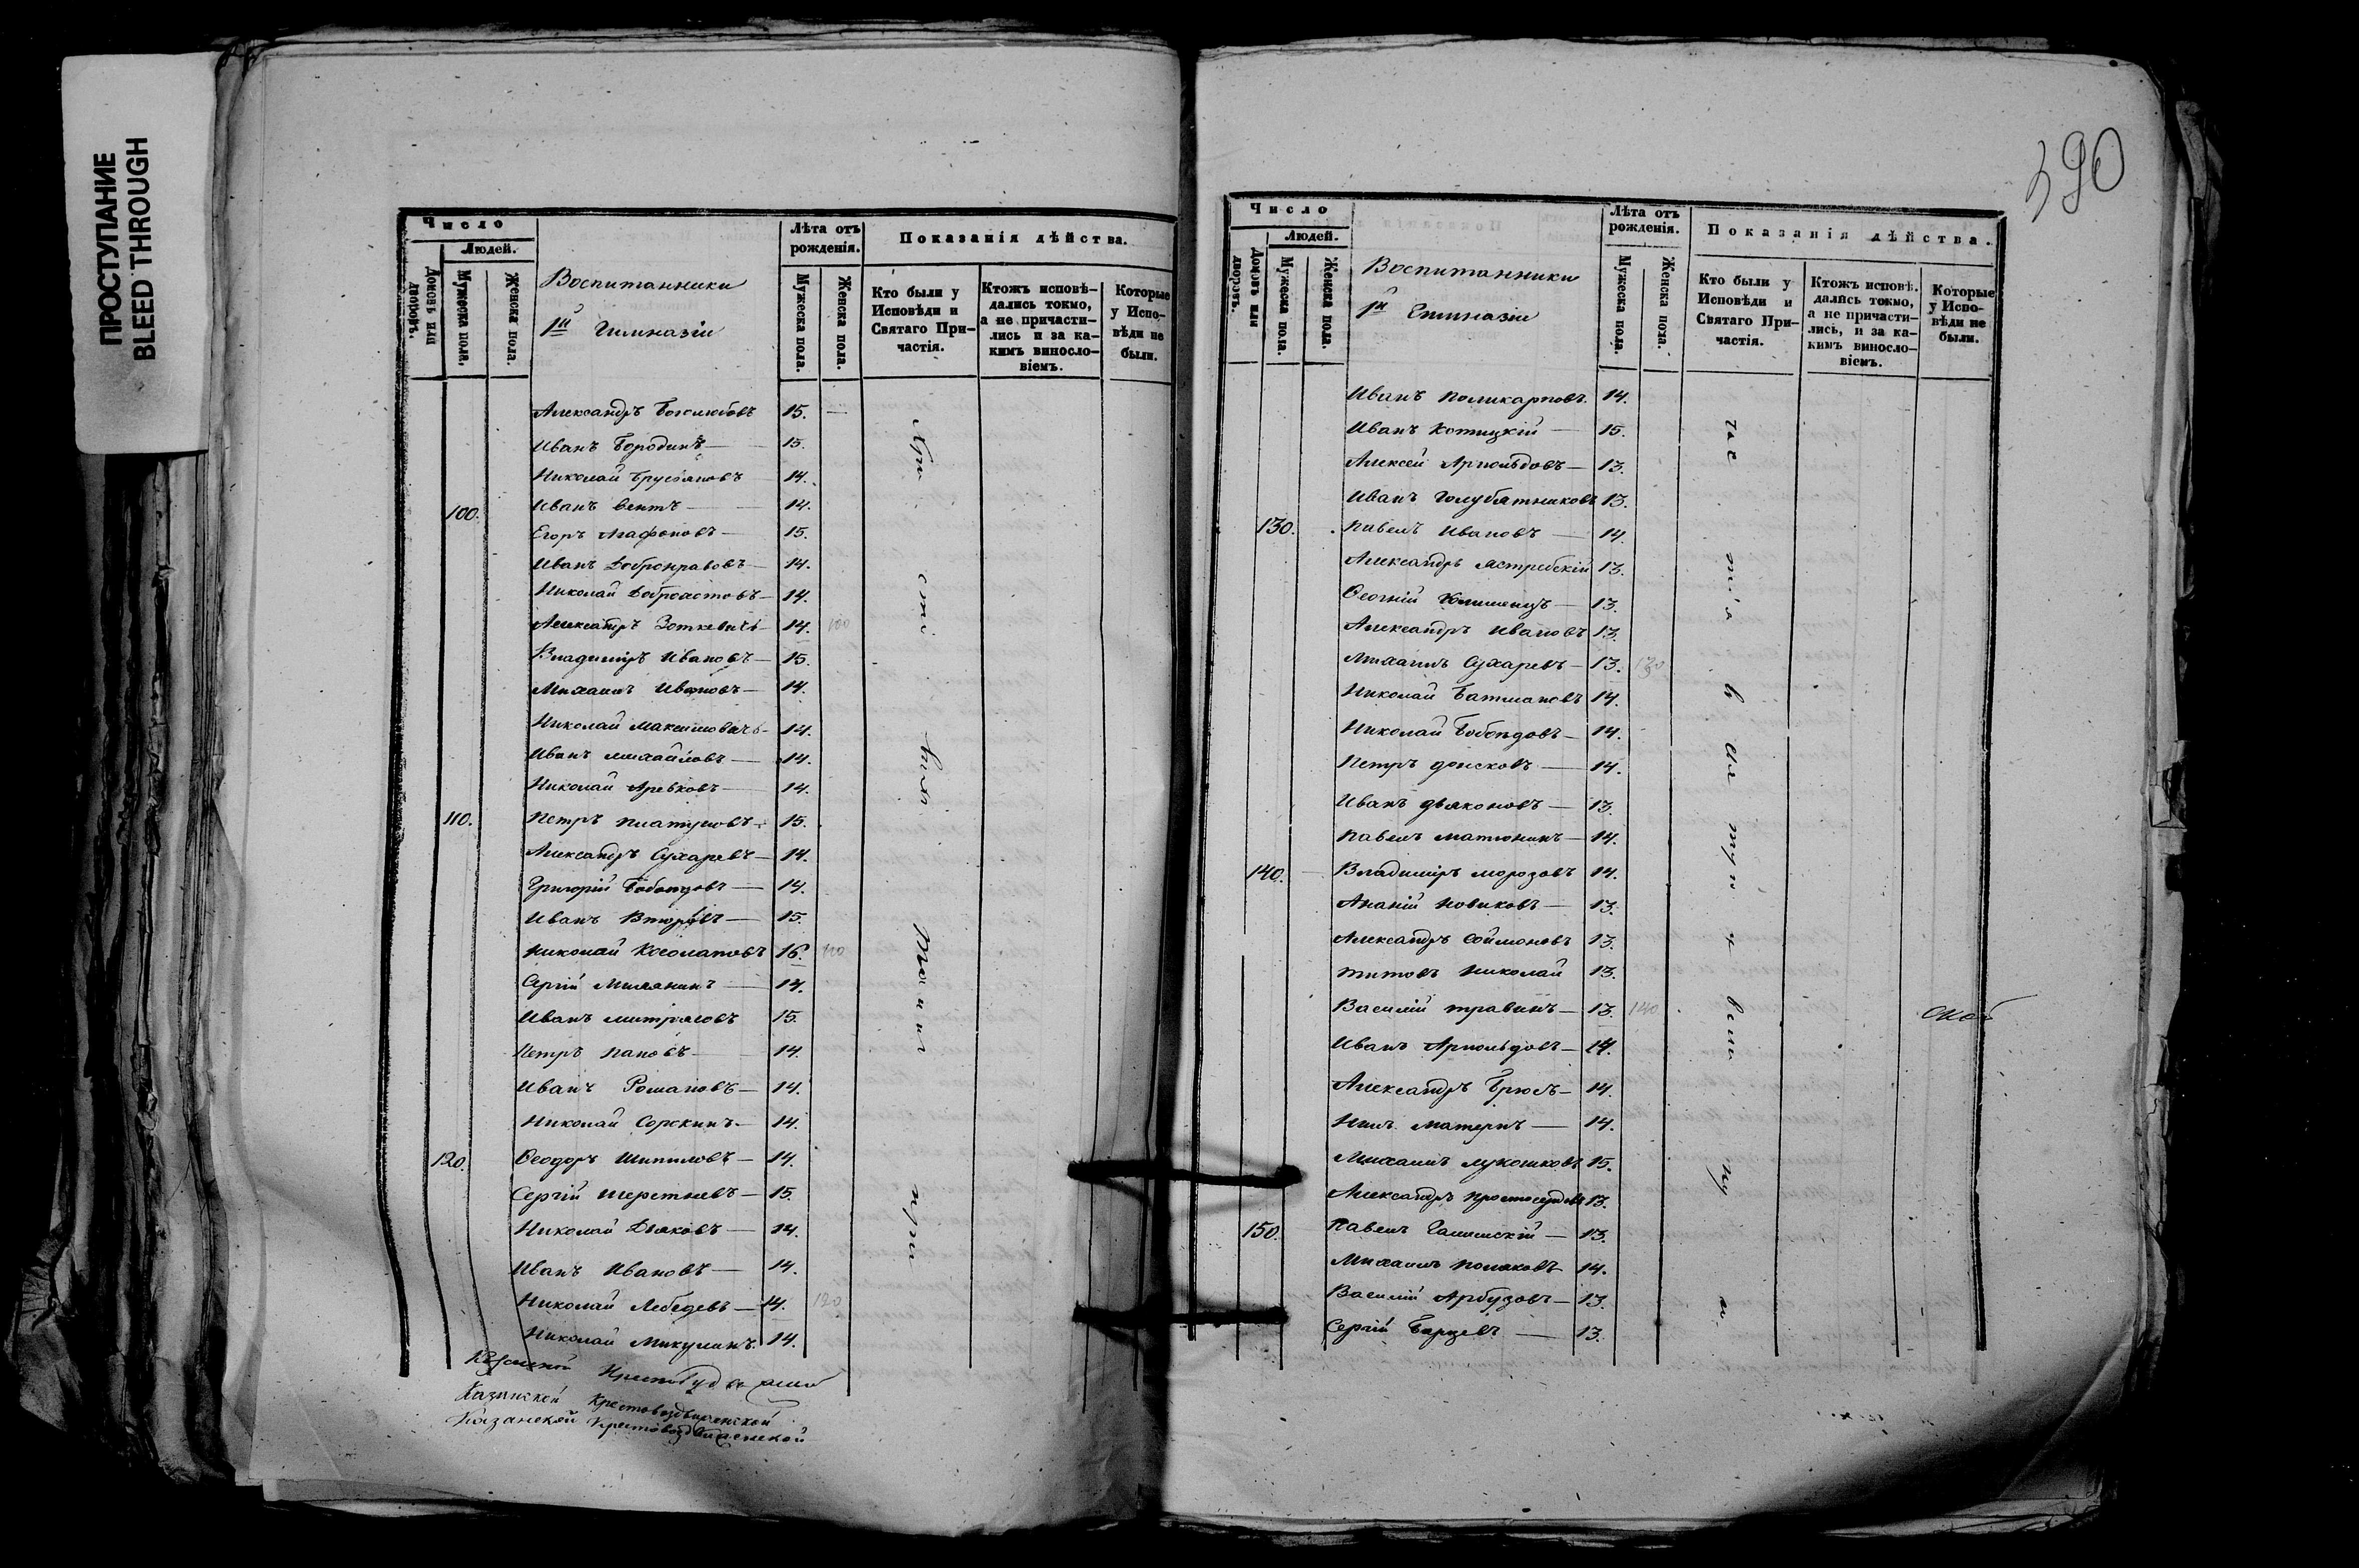 ПРОСТУПАНИЕ
BLEED THROUGH
Число
Людей.
Домовъ или дворовъ.
Мужеска пола.
Женска пола.
Воспитанники
1й Гимназіи
Лѣта отъ рожденія.
Мужеска пола.
Женска пола.
Показанія дѣйства.
Кто были у Исповѣди и Святаго Причастія.
Ктожъ исповѣдались токмо, а не причастились и за какимъ винословіемъ.
Которые у Исповѣди не были.
Александръ Боголюбовъ 15.
Иванъ Бородинъ 15.
Николай 14.
100. Иванъ Вентъ 14.
Егоръ Агафоновъ 15.
Иванъ Добронравовъ 14.
Николай 14.
Александръ Зоткевичъ 14. 100
Владиміръ Ивановъ 15.
Михаилъ Ивановъ 14.
Николай Максимовичъ 14.
Иванъ Михайловъ 14.
Николай 14.
110. Петръ Платуновъ 15.
Александръ Сухаревъ 14.
Григорій Бабоѣдовъ 14.
Иванъ Второвъ 15.
Николай Косолаповъ 16. 110
Сергій 14.
Иванъ 15.
Петръ Пановъ 14.
Иванъ Романовъ 14.
Николай Сорокинъ 14.
120. Ѳеодоръ Шипиловъ 14.
Сергій Шерстневъ 15.
Николай Дьяковъ 14.
Иванъ Ивановъ 14.
Николай Лебедевъ 14. 120
Николай Микулинъ 14.
при
Казанской Крестовоздвиженской
Казанской Крестовоздвиженской
390
Число
Людей.
Домовъ или дворовъ.
Мужеска пола.
Женска пола.
Воспитанники
1й Гимназіи
Лѣта отъ рожденія.
Мужеска пола.
Женска пола.
Показанія дѣйства.
Кто были у Исповѣди и Святаго Причастія.
Ктожъ исповѣдались токмо, а не причастились, и за какимъ винословіемъ.
Которые у Исповѣди не были.
Иванъ Поликарповъ 14.
Иванъ Котицкій 15.
Алексей Арнольдовъ 13.
Иванъ Голубятниковъ 13.
130. Павелъ Ивановъ 14.
Александръ Ястребскій 13.
13.
Александръ Ивановъ 13.
Михаилъ Сухаревъ 13. 130
Николай Батмановъ 14.
Николай Бабоѣдовъ 14.
Петръ Донсковъ 14.
Иванъ Дьяконовъ 13.
Павелъ Матюнинъ 14.
140. Владиміръ Морозовъ 14.
Ананій Новиковъ 13.
Александръ Соймоновъ 13.
Титовъ Николай 13.
Василій Травинъ 13. 140
Иванъ Арнольдовъ 14.
Александръ 14.
Нилъ Матернъ 14.
Михаилъ Лукошковъ 15.
Александръ Простосердовъ 13.
150. Павелъ 13.
Михаилъ Поляковъ 14.
Василій Арбузовъ 13.
Сергій 13.